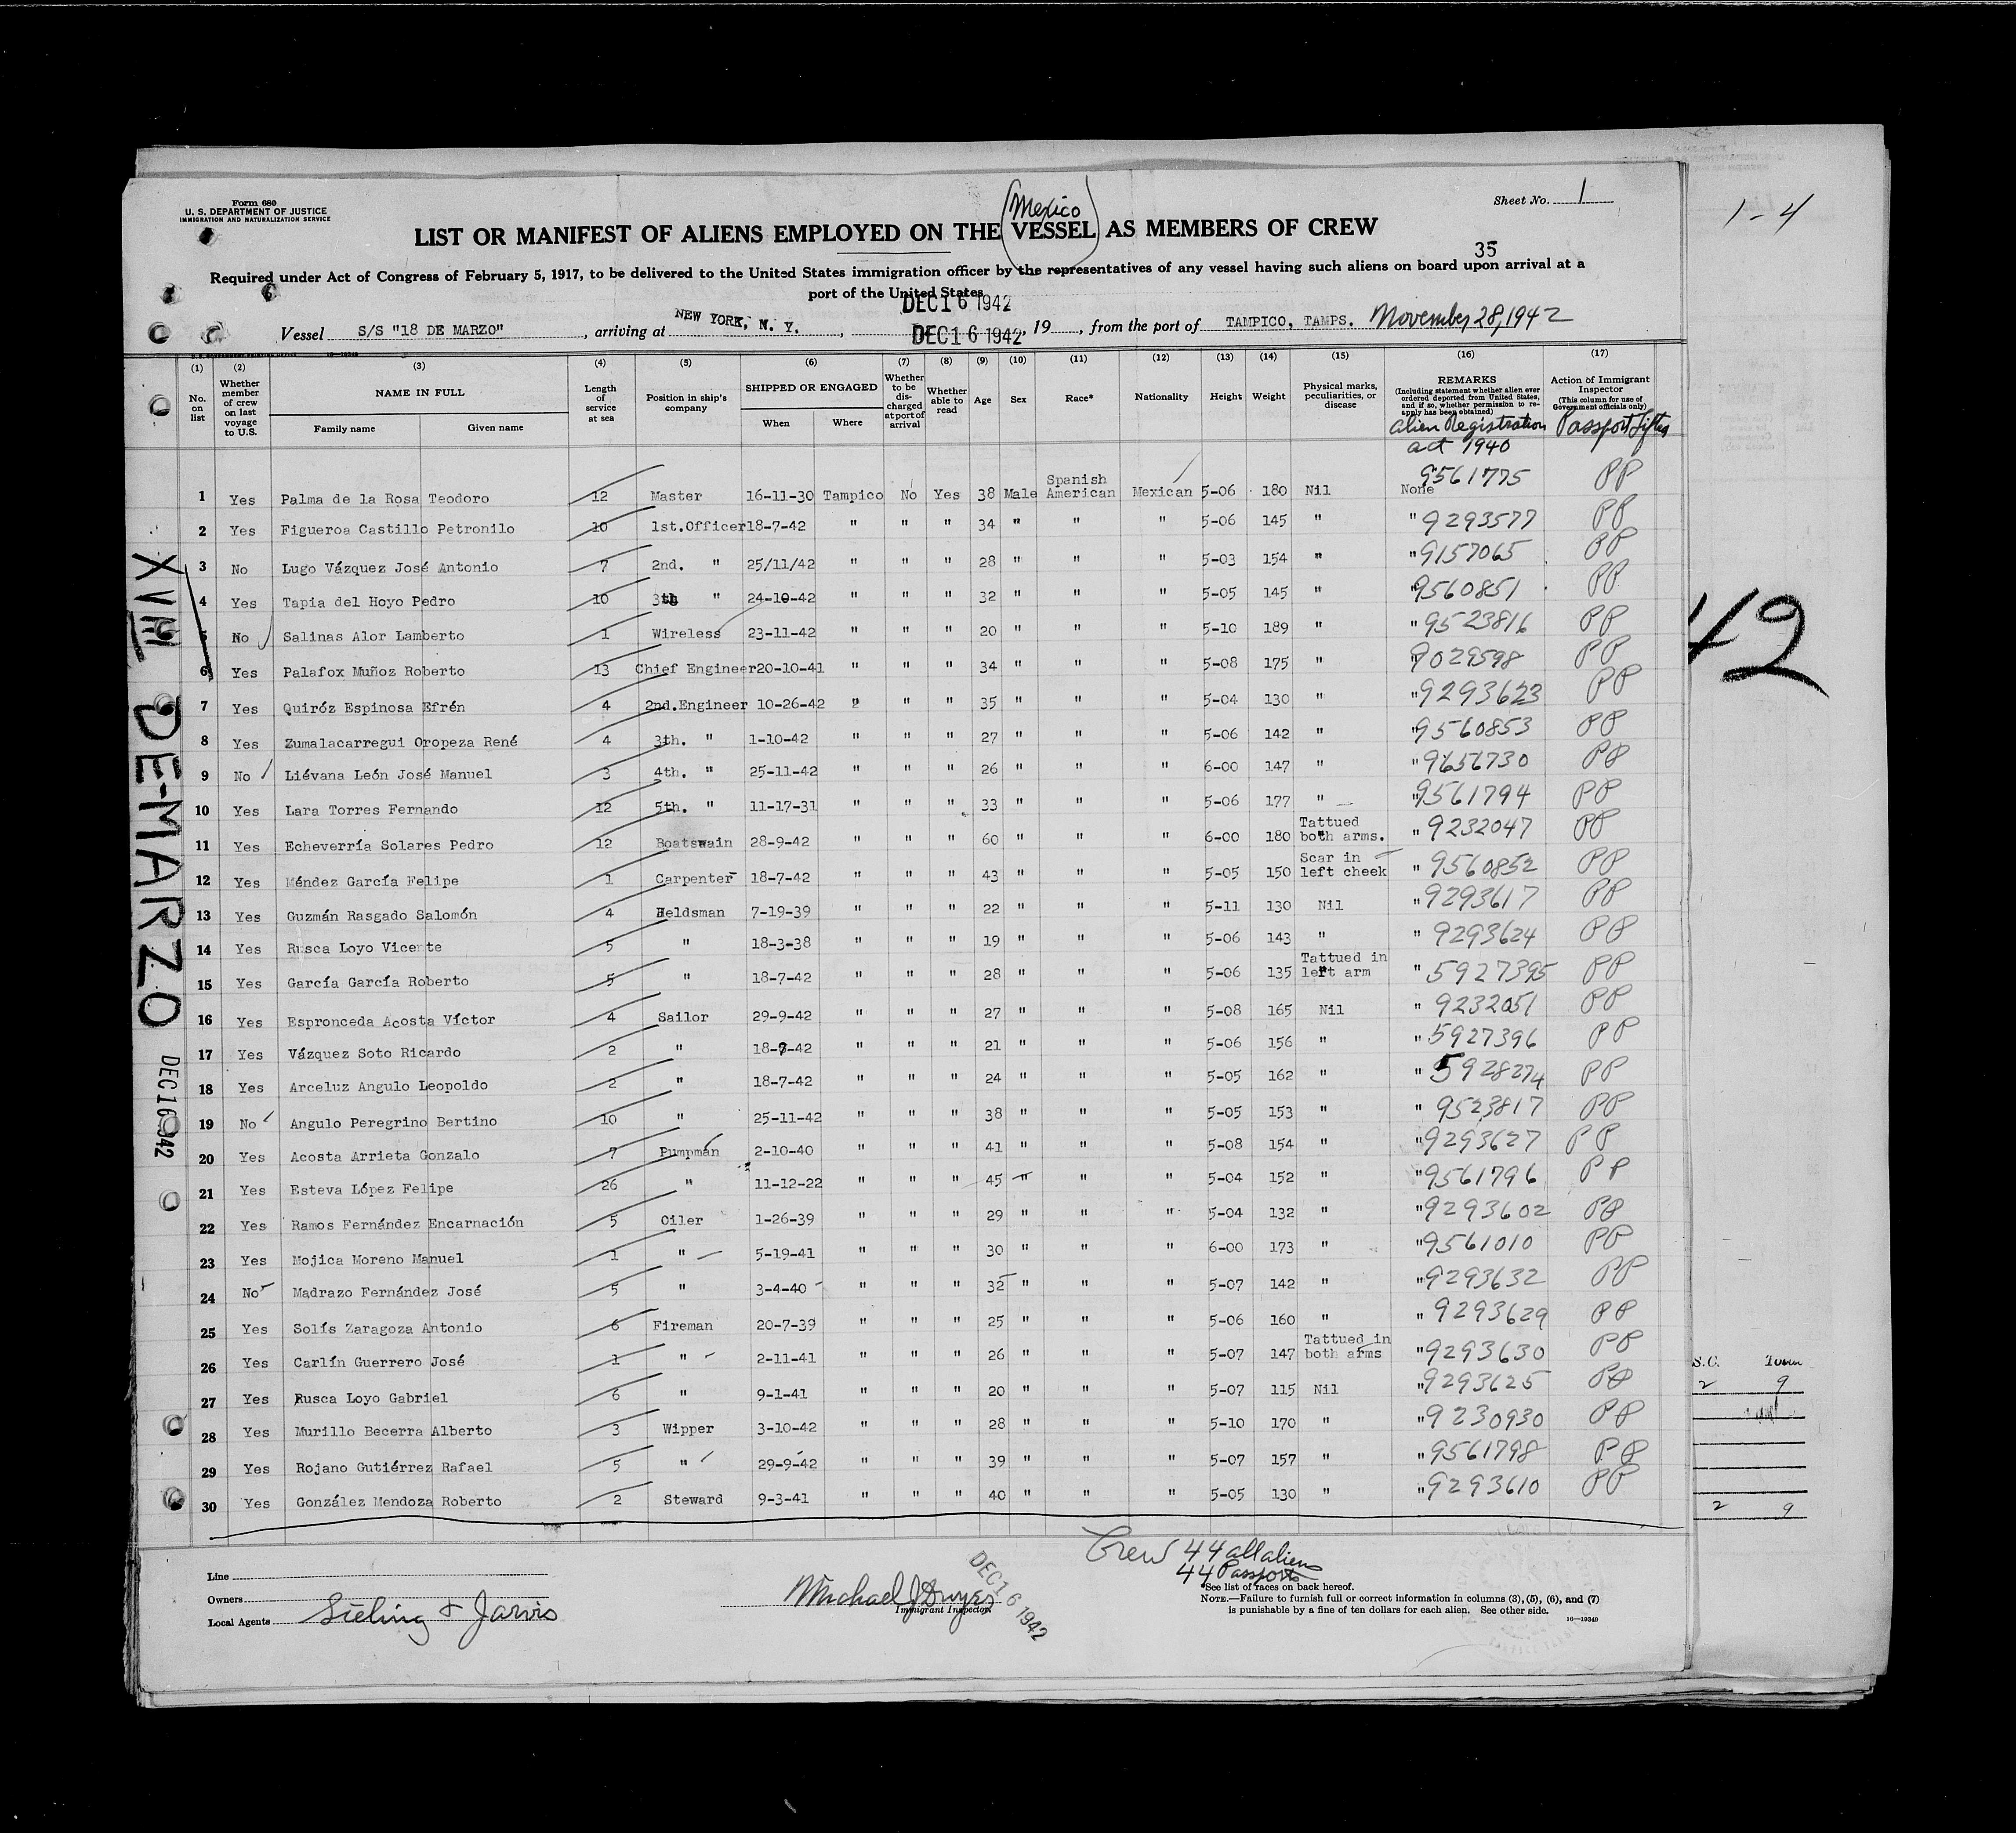 Form 680
U. S. DEPARTMENT OF JUSTICE
IMMIGRATION AND NATURALIZATION SERVICE
Sheet No. 1
1-4
(Mexico)
LIST OR MANIFEST OF ALIENS EMPLOYED ON THE VESSEL AS MEMBERS OF CREW
35
Required under Act of Congress of February 5, 1917, to be delivered to the United States immigration officer by the representatives of any vessel having such aliens on board upon arrival at a
port of the United States
DEC 16 1942
Vessel S/S "18 DE MARZO", arriving at NEW YORK, N. Y., DEC 16 1942, 19, from the port of TAMPICO, TAMPS. November 28, 1942
(1) (2) (3) (4) (5) (6) (7) (8) (9) (10) (11) (12) (13) (14) (15) (16) (17)
No. on list
Whether member of crew on last voyage to U.S.
NAME IN FULL
Family name Given name
Length of service at sea
Position in ship's company
SHIPPED OR ENGAGED
When Where
Whether to be discharged at port of arrival
Whether able to read
Age
Sex
Race*
Nationality
Height
Weight
Physical marks, peculiarities, or disease
REMARKS
(Including statement whether alien ever ordered deported from United States, and if so, whether permission to reapply has been obtained)
Alien Registration act 1940
Action of Immigrant Inspector
(This column for use of Government officials only)
Passport
1 Yes Palma de la Rosa Teodoro 12 Master 16-11-30 Tampico No Yes 38 Male Spanish American Mexican 5-06 180 Nil None 9561775 PP
2 Yes Figueroa Castillo Petronilo 10 1st.Officer 18-7-42 " " " 34 " " " 5-06 145 " " 9293577 PP
3 No Lugo Vázquez José Antonio 7 2nd. " 25/11/42 " " " 28 " " " 5-03 154 " " 9157065 PP
4 Yes Tapia del Hoyo Pedro 10 3th " 24-10-42 " " " 32 " " " 5-05 145 " " 9560851 PP
5 No Salinas Alor Lamberto 1 Wireless 23-11-42 " " " 20 " " " 5-10 189 " " 9523816 PP
6 Yes Palafox Muñoz Roberto 13 Chief Engineer 20-10-41 " " " 34 " " " 5-08 175 " " 9029598 PP
7 Yes Quiróz Espinosa Efrén 4 2nd.Engineer 10-26-42 " " " 35 " " " 5-04 130 " " 9293623 PP
8 Yes Zumalacarregui Oropeza René 4 3th. " 1-10-42 " " " 27 " " " 5-06 142 " " 9560853 PP
9 No Liévana León José Manuel 3 4th. " 25-11-42 " " " 26 " " " 6-00 147 " " 9656730 PP
10 Yes Lara Torres Fernando 12 5th. " 11-17-31 " " " 33 " " " 5-06 177 " " 9561794 PP
11 Yes Echeverría Solares Pedro 12 Boatswain 28-9-42 " " " 60 " " " 6-00 180 Tattued both arms. " 9232047 PP
12 Yes Méndez García Felipe 1 Carpenter 18-7-42 " " " 43 " " " 5-05 150 Scar in left cheek " 9560852 PP
13 Yes Guzmán Rasgado Salomón 4 Heldsman 7-19-39 " " " 22 " " " 5-11 130 Nil " 9293617 PP
14 Yes Rusca Loyo Vicente 5 " 18-3-38 " " " 19 " " " 5-06 143 " " 9293624 PP
15 Yes García García Roberto 5 " 18-7-42 " " " 28 " " " 5-06 135 Tattued in left arm " 5927395 PP
16 Yes Espronceda Acosta Víctor 4 Sailor 29-9-42 " " " 27 " " " 5-08 165 Nil " 9232051 PP
17 Yes Vázquez Soto Ricardo 2 " 18-7-42 " " " 21 " " " 5-06 156 " " 5927396 PP
18 Yes Arceluz Angulo Leopoldo 2 " 18-7-42 " " " 24 " " " 5-05 162 " " 5928274 PP
19 No Angulo Peregrino Bertino 10 " 25-11-42 " " " 38 " " " 5-05 153 " " 9523817 PP
20 Yes Acosta Arrieta Gonzalo 7 Pumpmán 2-10-40 " " " 41 " " " 5-08 154 " " 9293627 PP
21 Yes Esteva López Felipe 26 " 11-12-22 " " " 45 " " " 5-04 152 " " 9561796 PP
22 Yes Ramos Fernández Encarnación 5 Oiler 1-26-39 " " " 29 " " " 5-04 132 " " 9293602 PP
23 Yes Mojica Moreno Manuel 1 " 5-19-41 " " " 30 " " " 6-00 173 " " 9561010 PP
24 No Madrazo Fernández José 5 " 3-4-40 " " " 32 " " " 5-07 142 " " 9293632 PP
25 Yes Solís Zaragoza Antonio 6 Fireman 20-7-39 " " " 25 " " " 5-06 160 " " 9293629 PP
26 Yes Carlín Guerrero José 1 " 2-11-41 " " " 26 " " " 5-07 147 Tattued in both arms " 9293630 PP
27 Yes Rusca Loyo Gabriel 6 " 9-1-41 " " " 20 " " " 5-07 115 Nil " 9293625 PP
28 Yes Murillo Becerra Alberto 3 Wipper 3-10-42 " " " 28 " " " 5-10 170 " " 9230930 PP
29 Yes Rojano Gutiérrez Rafael 5 " 29-9-42 " " " 39 " " " 5-07 157 " " 9561798 PP
30 Yes González Mendoza Roberto 2 Steward 9-3-41 " " " 40 " " " 5-05 130 " " 9293610 PP
XVIII DE-MARZO
DEC 16 1942
42
S.C. Total
2 9
2 9
Crew 44 all aliens
44 Passports
Line
Owners
Local Agents Sieling & Jarvis
Michael J Dwyer
Immigrant Inspector
DEC 16 1942
*See list of races on back hereof.
NOTE.—Failure to furnish full or correct information in columns (3), (5), (6), and (7)
is punishable by a fine of ten dollars for each alien. See other side.
16—19349